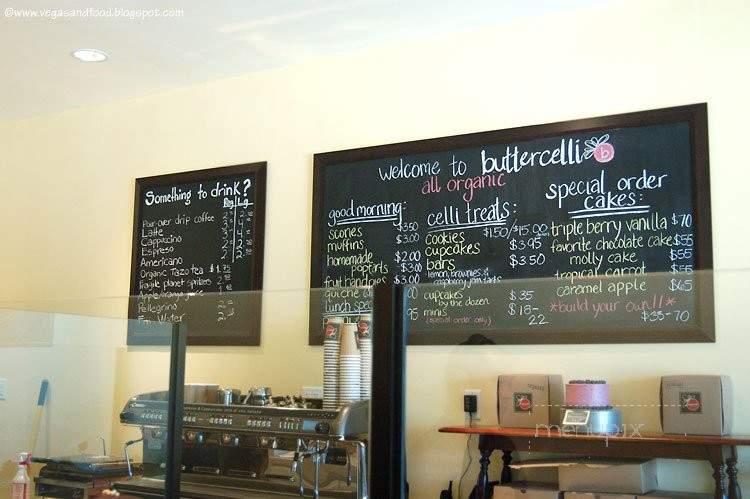 ©www.vegasandfood.blogspot.com
Something to drink?
Reg Lg
Pour-over drip coffee
Latte
Cappuccino
Espresso
Americano
Organic Tazo tea $1.75
Pellegrino
Water
welcome to buttercelli b
all organic
good morning:
scones $3.50
muffins $3.00
homemade $2.00
poptarts $3.00
fruit handies $3.00
quiche
lunch
celli treats:
cookies $1.50/$15.00
cupcakes $3.95
bars $3.50
lemon, brownies &
raspberry jam tarts
cupcakes $35
by the dozen
minis $18-
(special order only) 22
special order
cakes:
triple berry vanilla $70
favorite chocolate cake $55
molly cake $55
tropical carrot $55
caramel apple $65
*build your own!!*
$35-70
menupix